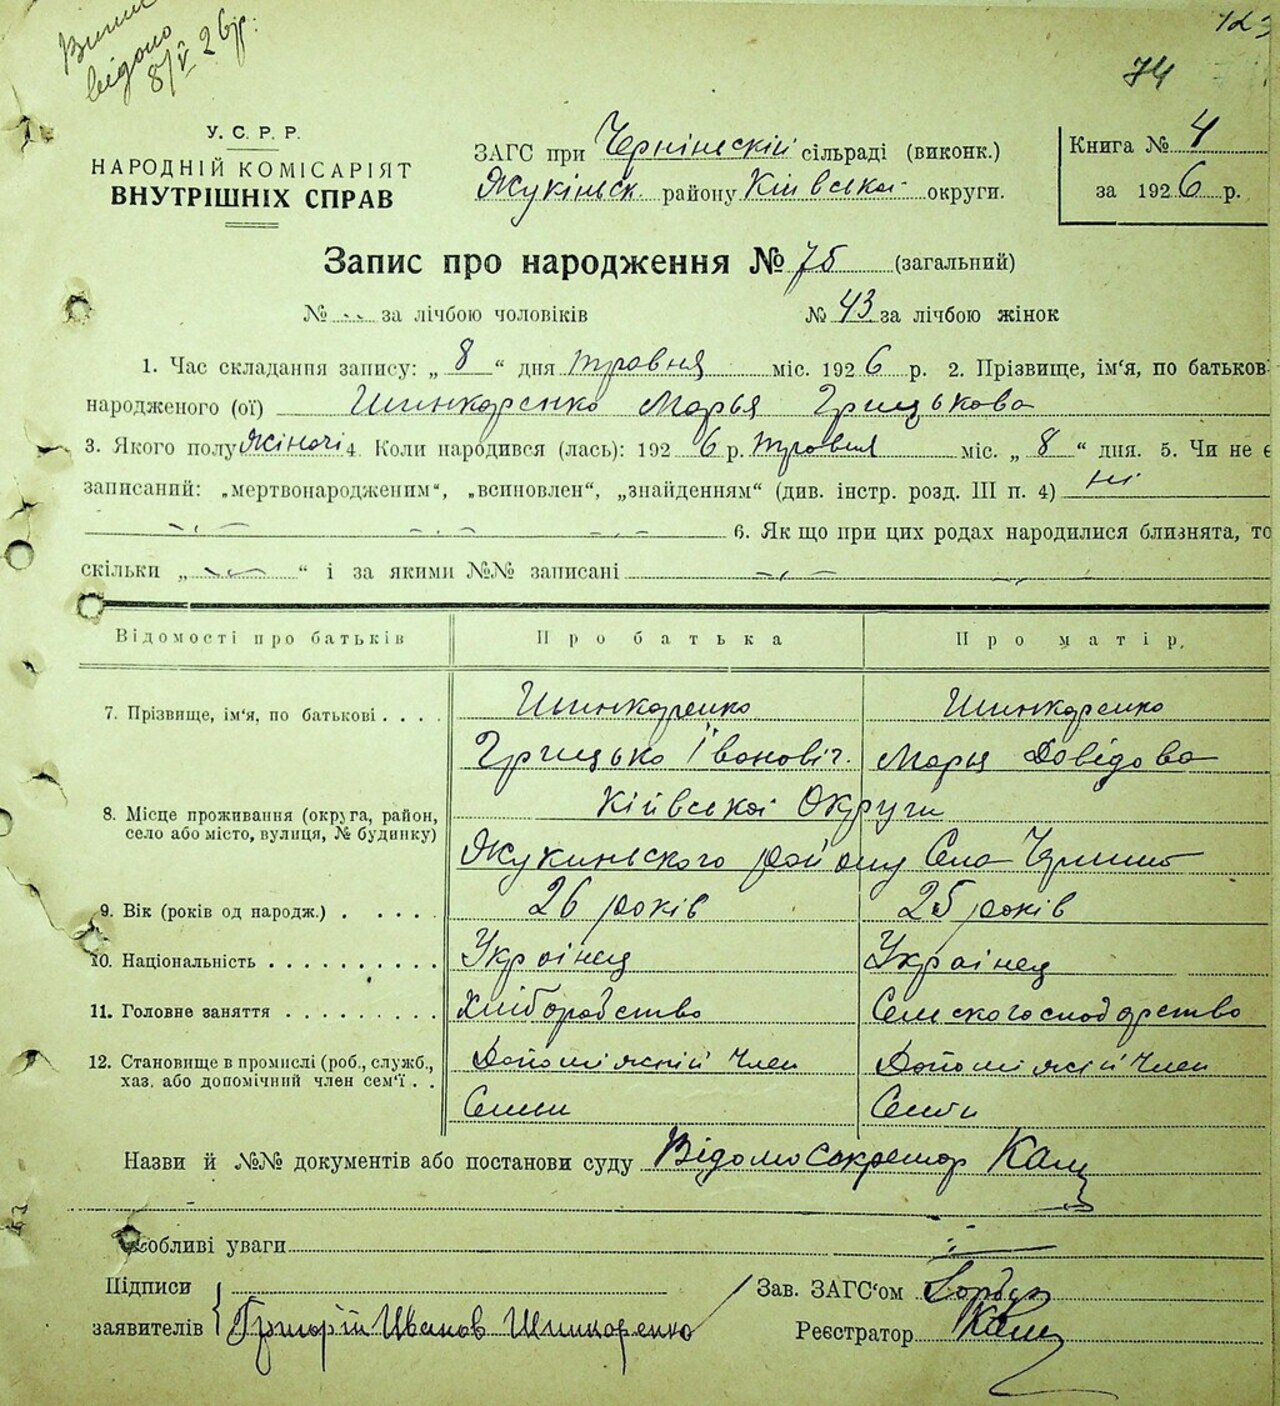 відомо
8/V 26р.
123
74
У. С. Р. Р.
НАРОДНІЙ КОМІСАРІЯТ
ВНУТРІШНІХ СПРАВ
ЗАГС при Чернінській сільраді (виконк.)
Жукінськ. району Київської округи.
Книга № 4
за 1926 р.
Запис про народження № 75 (загальний)
№ за лічбою чоловіків № 43 за лічбою жінок
1. Час складання запису: „ 8 “ дня травня міс. 1926 р. 2. Прізвище, ім'я, по батьков
народженого (ої) Шинкаренко Марья Грицькова
3. Якого полу жіночі 4. Коли народився (лась): 1926 р. травня міс. „ 8 “ дня. 5. Чи не є
записаний: „мертвонародженим“, „всиновлен“, „знайденням“ (див. інстр. розд. III п. 4) ні
6. Як що при цих родах народилися близнята, то
скільки „ “ і за якими №№ записані
Відомості про батьків Про батька Про матір,
7. Прізвище, ім'я, по батькові . . . . Шинкаренко Шинкаренко
Грицько Іванович. Марья Довідова
8. Місце проживання (округа, район, село або місто, вулиця, № будинку) Київської Округи
Жукинського району Села Чернин
9. Вік (років од народж.) . . . . . 26 років 25 років
10. Національність . . . . . . . . . . Украінец Украінец
11. Головне заняття . . . . . . . . . Хліборобство Сельскогосподарство
12. Становище в промислі (роб., служб., хаз. або допомічний член сем'ї . . Член Член
Семьи Семьи
Назви й №№ документів або постанови суду Відомо Секретар
Особливі уваги
Підписи
заявителів Григорій Иванов Шинкаренко
Зав. ЗАГС'ом
Реєстратор